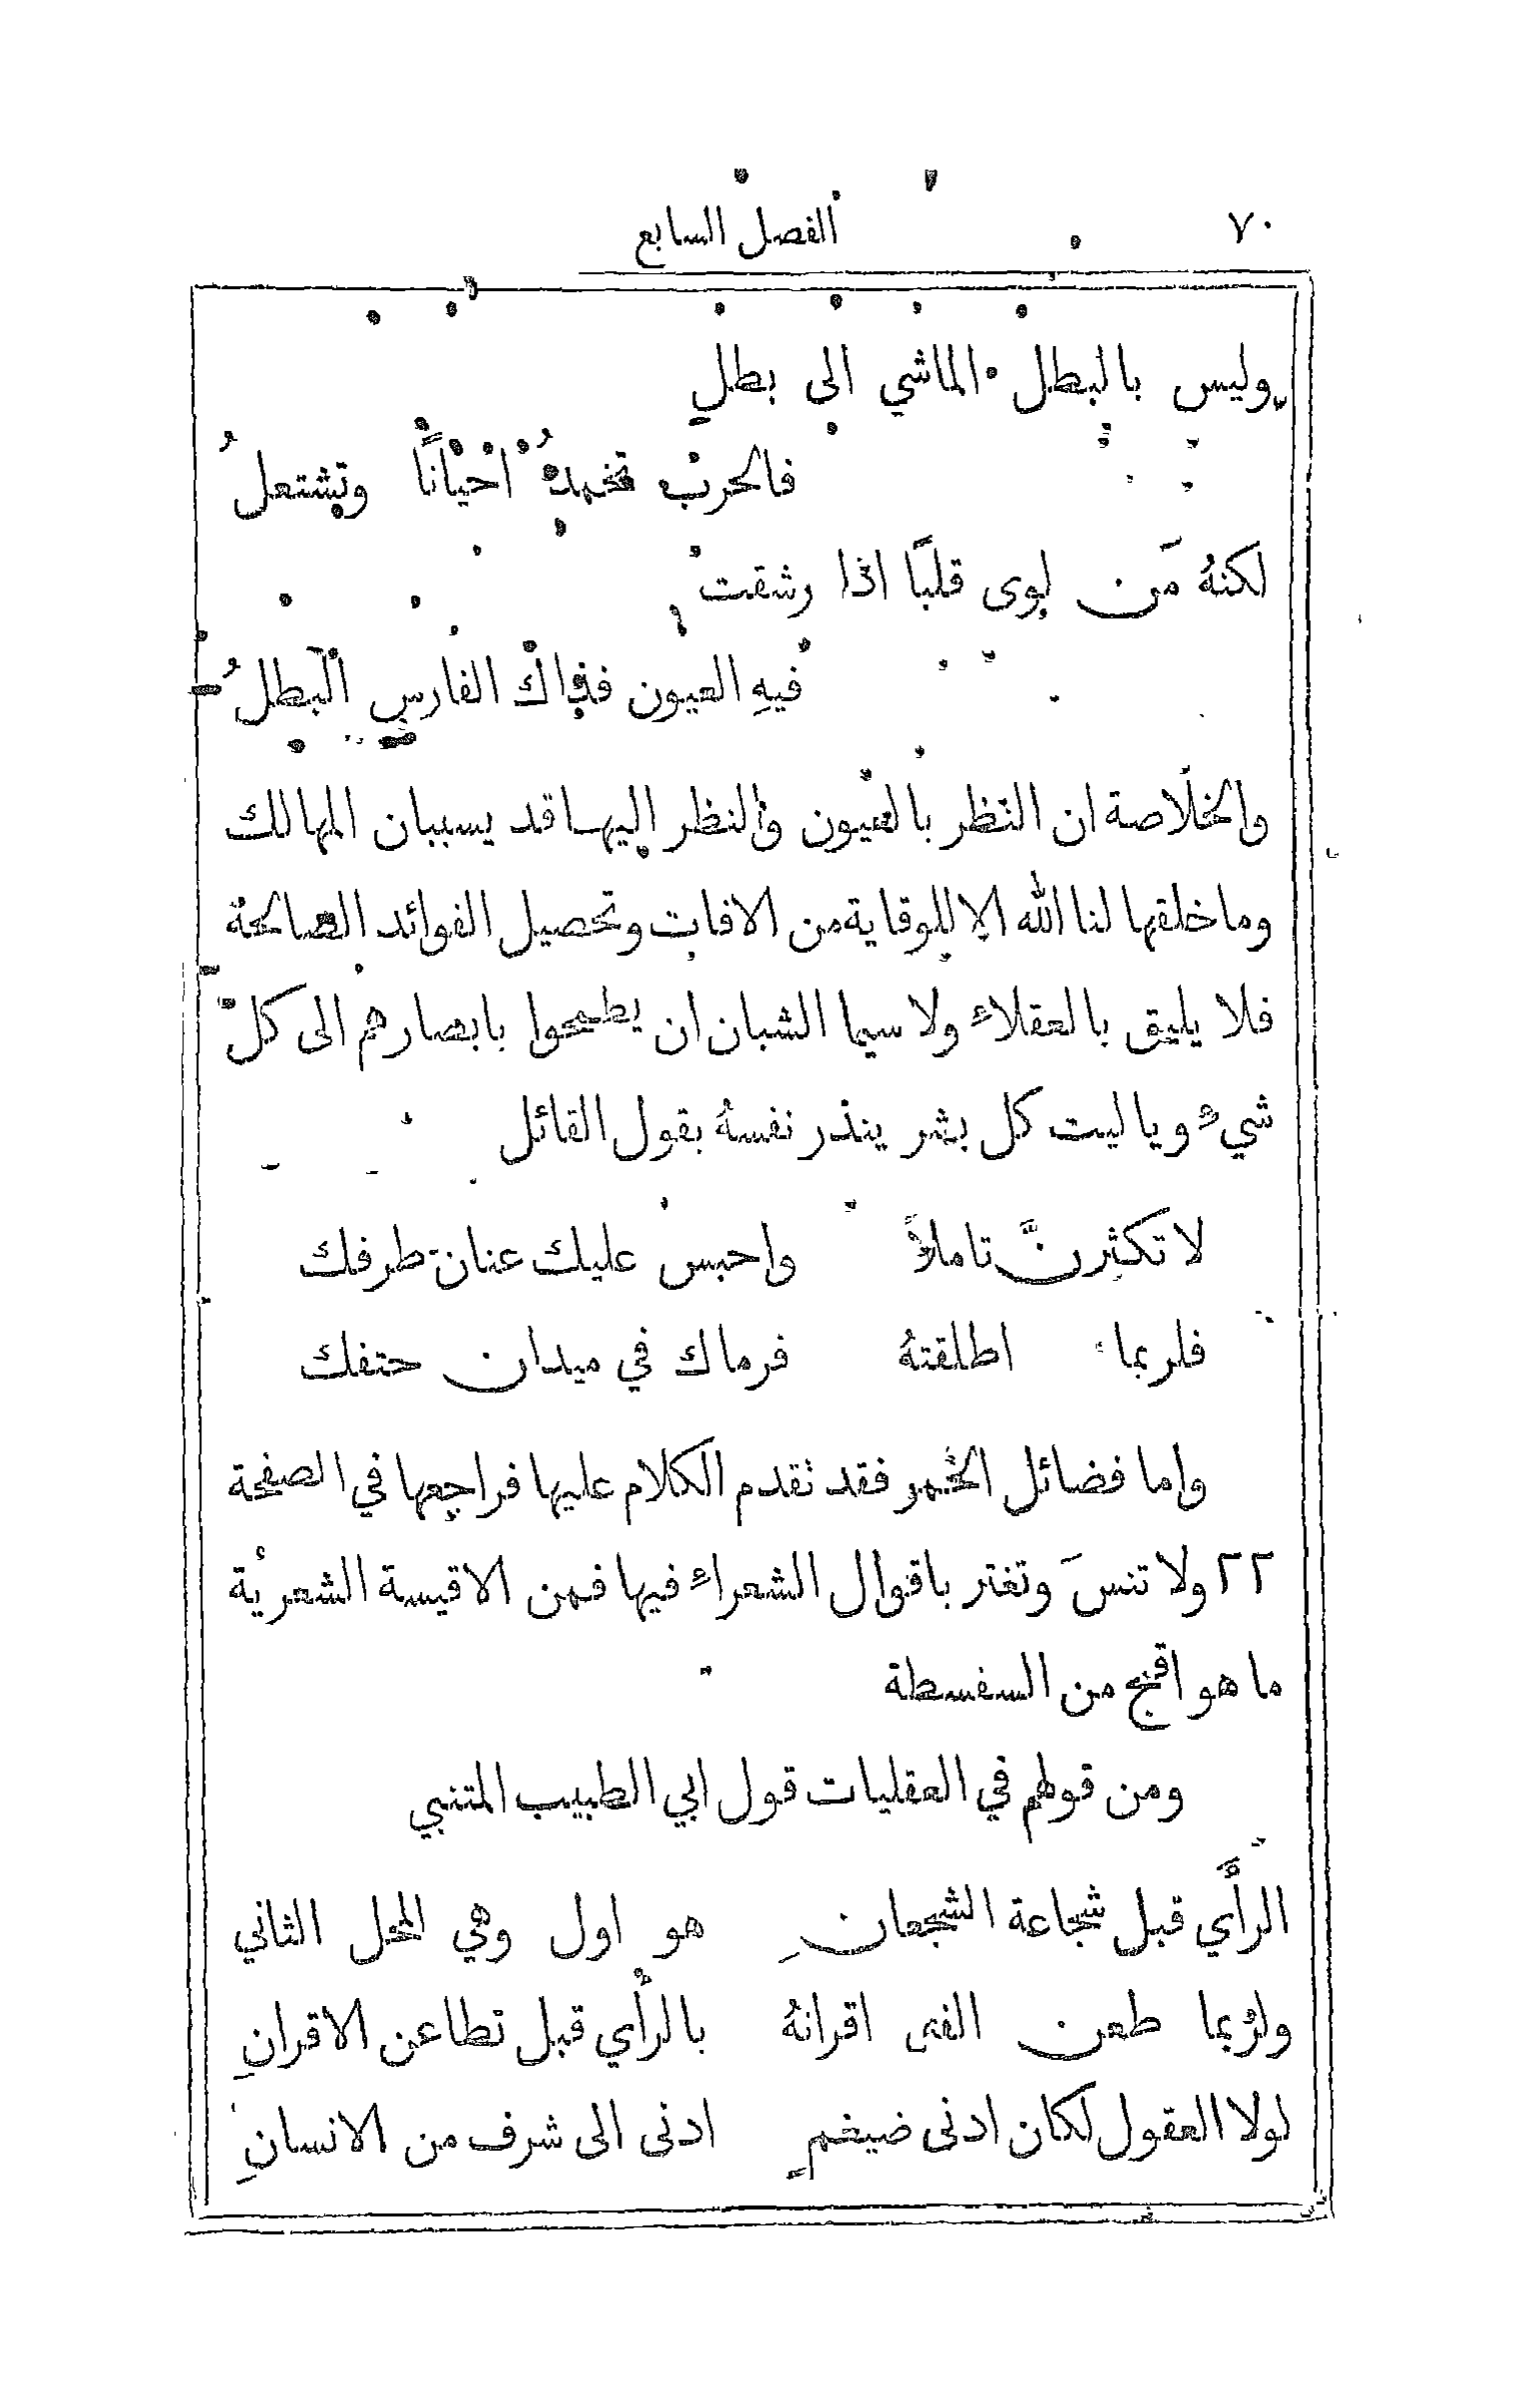 ٧٠
الفصل السابع
وليس بالبطل الماشي الى بطلٍ
فالحرب تخمد احيانًا وتشتعلُ
لكنهُ مَن لوى قلبًا اذا رشقت
فيهِ العيون فذاك الفارس البطلُ
والخلاصة ان النظر بالعيون والنظر اليها قد يسببان المهالك
وما خلقها لنا الله الا للوقاية من الافات وتحصيل الفوائد الصالحة
فلا يليق بالعقلاء ولا سيما الشبان ان يطمحوا بابصارهم الى كل
شيء ويا ليت كل بشر ينذر نفسهُ بقول القائل
لا تكثرنَّ تاملاً واحبس عليك عنان طرفك
فلربما اطلقتهُ فرماك في ميدان حتفك
واما فضائل الخمر فقد تقدم الكلام عليها فراجعها في الصفحة
٢٢ ولا تنسَ وتغتر باقوال الشعراء فيها فمن الاقيسة الشعرية
ما هو اقبح من السفسطة
ومن قولهم في العقليات قول ابي الطبيب المتنبي
الرأي قبل شجاعة الشجعانِ هو اول وهي المحل الثاني
ولربما طعن الفتى اقرانهُ بالرأي قبل تطاعن الاقرانِ
لولا العقول لكان ادنى ضيغمٍ ادنى الى شرف من الانسانِ